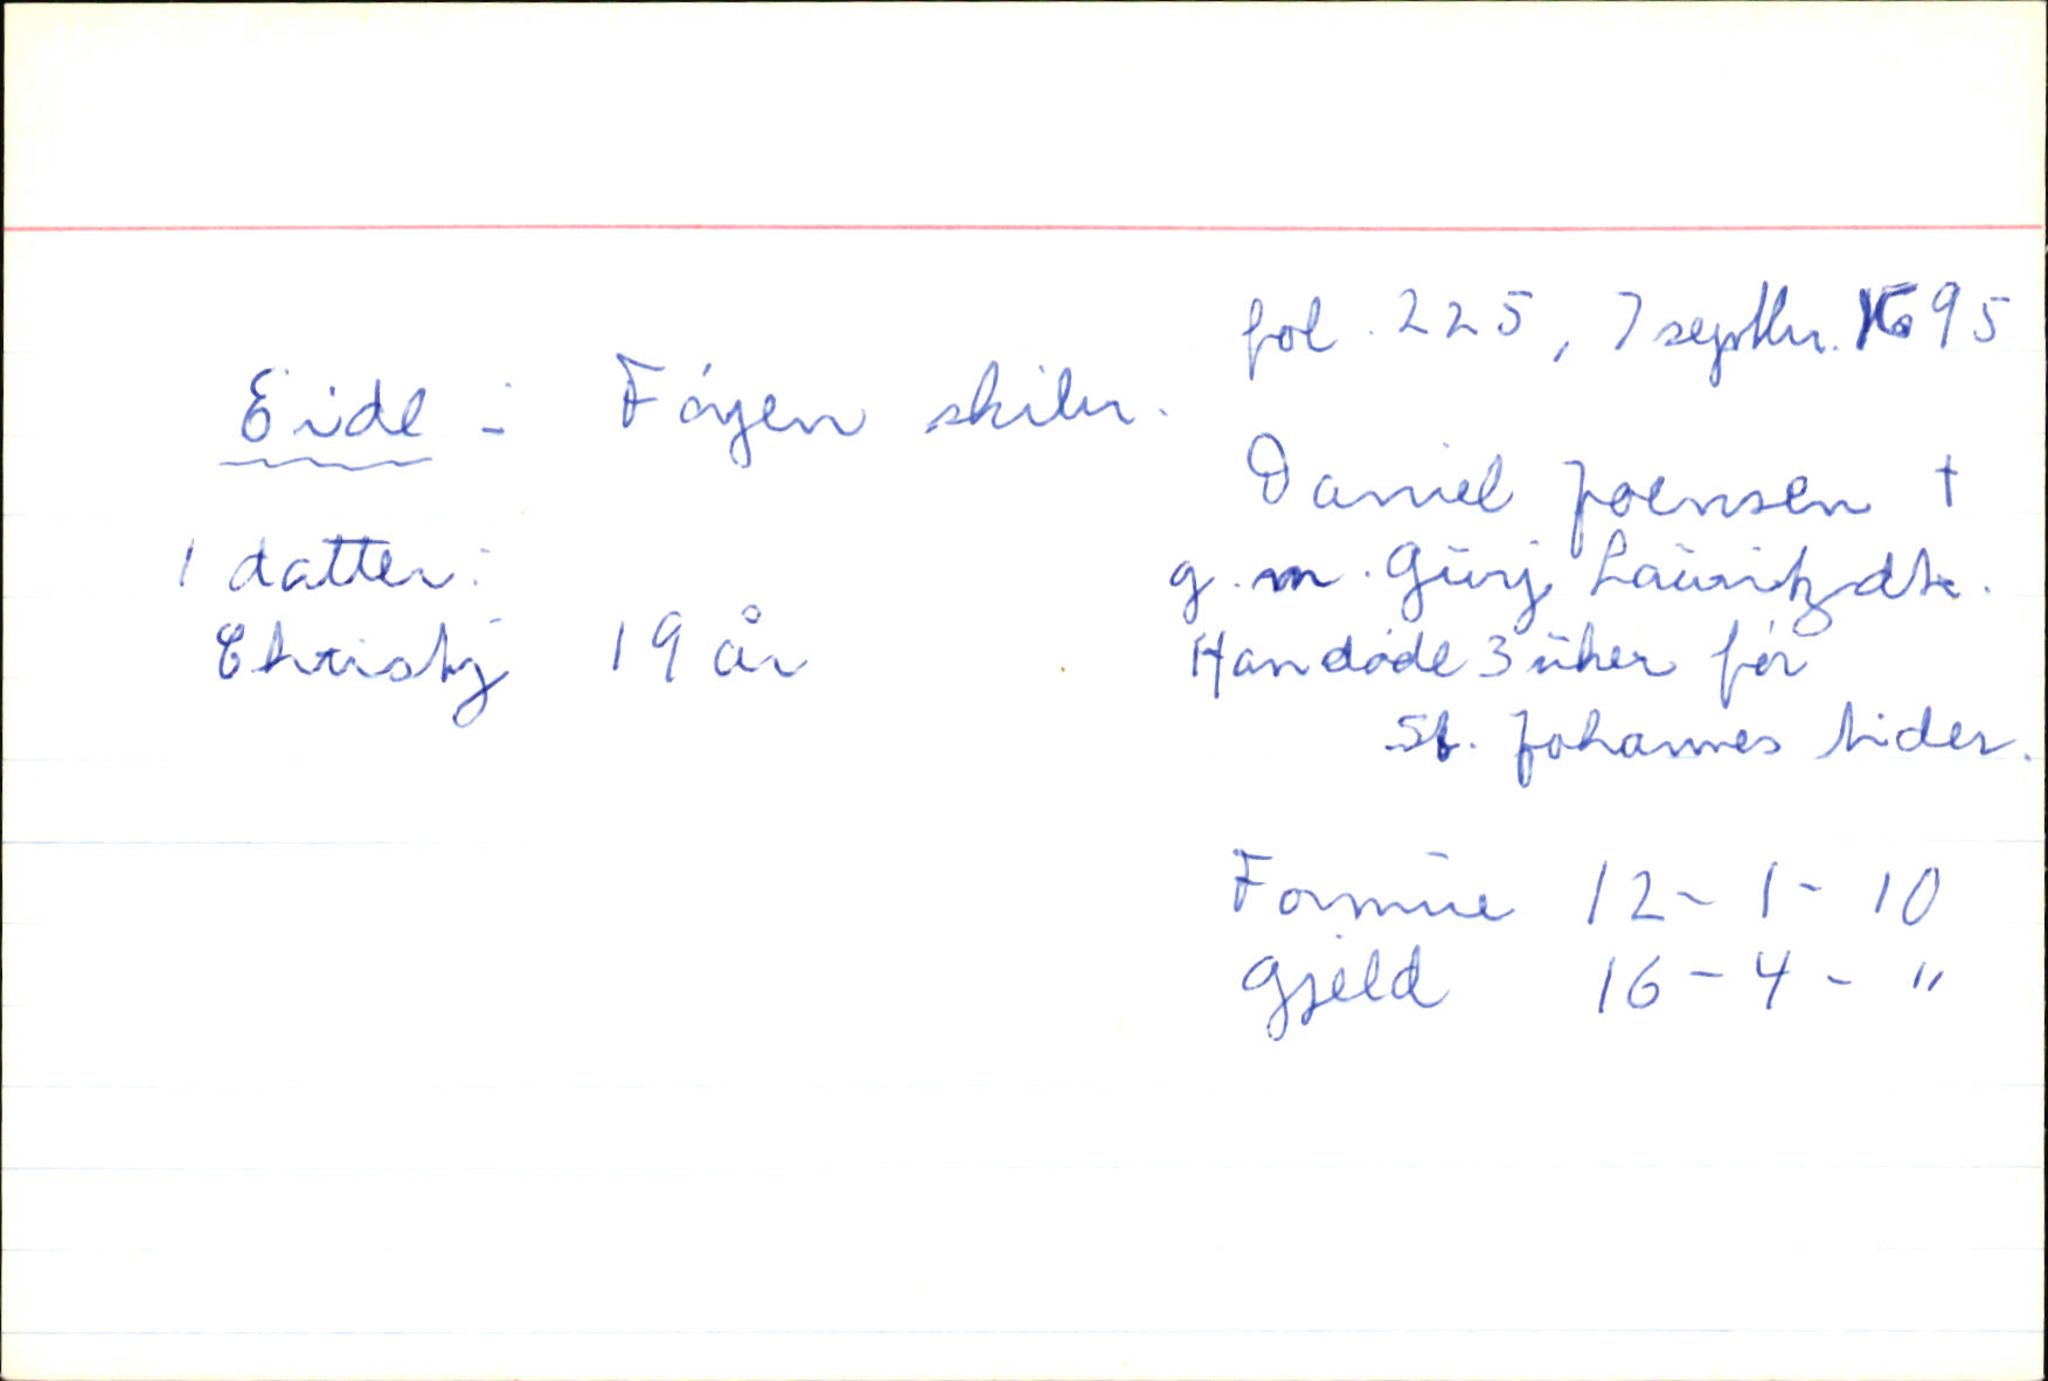 fol. 225, 7 septbr. 1695
Eide - Föyen skibr.
Daniel Joensen †
g. m. Gurj Lauritzdtr.
Han døde 3 uker før
St. Johannes tider.
1 datter:
Christj 19 år
Formue 12 - 1 - 10
Gjeld 16 - 4 - "